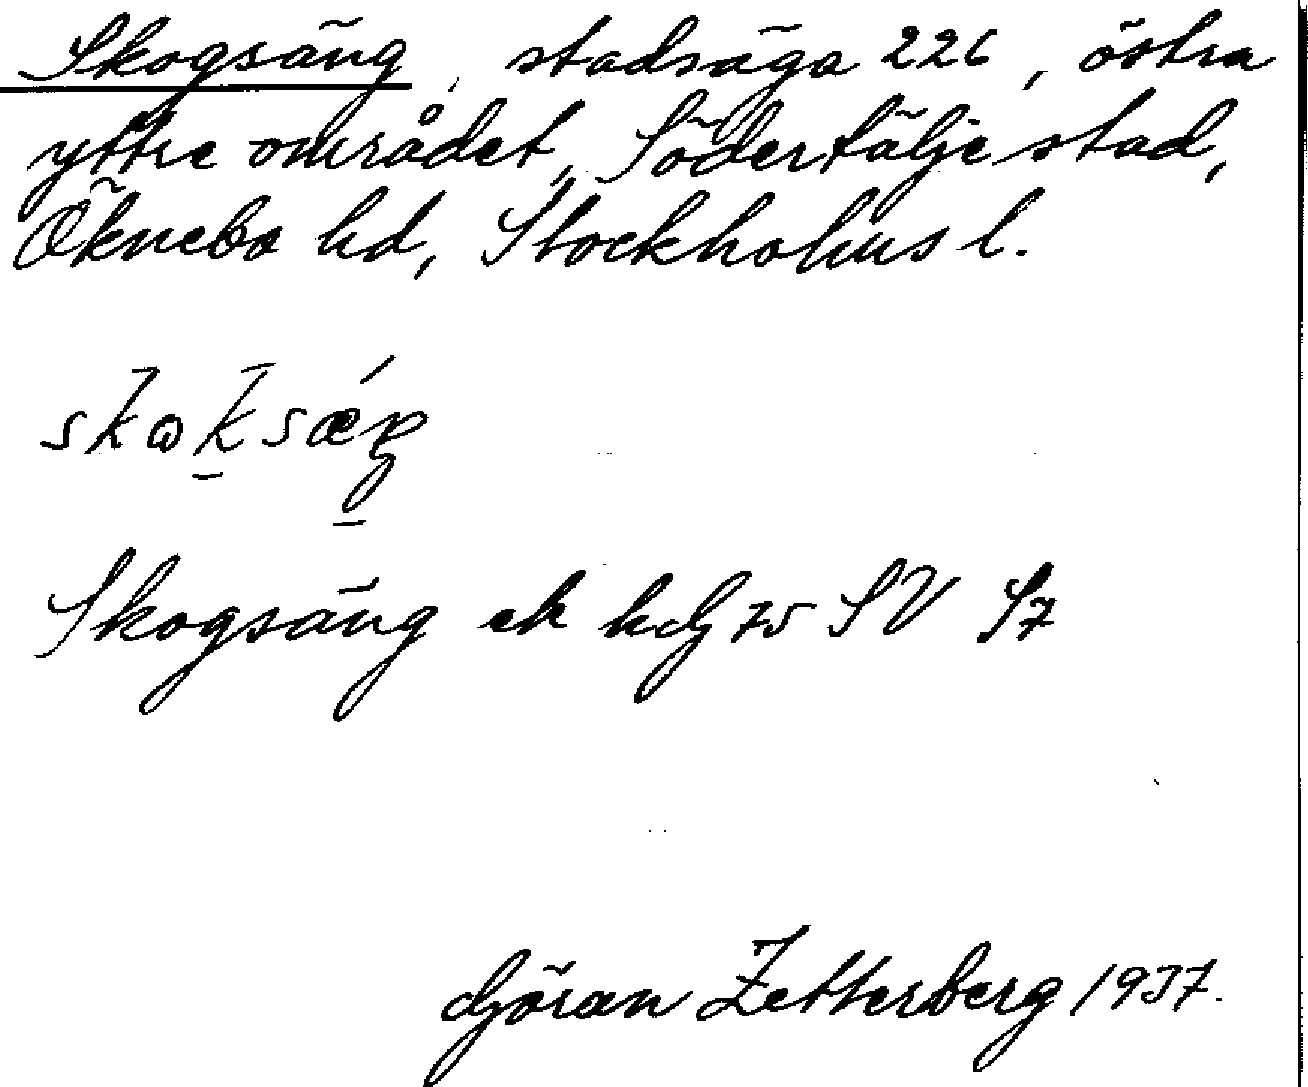 Skogsäng, stadsäga 226, östra
yttre området, Södertälje stad,
Öknebo hd, Stockholms l.
Skogsäng ek SV S7
Göran Zetterberg 1937.